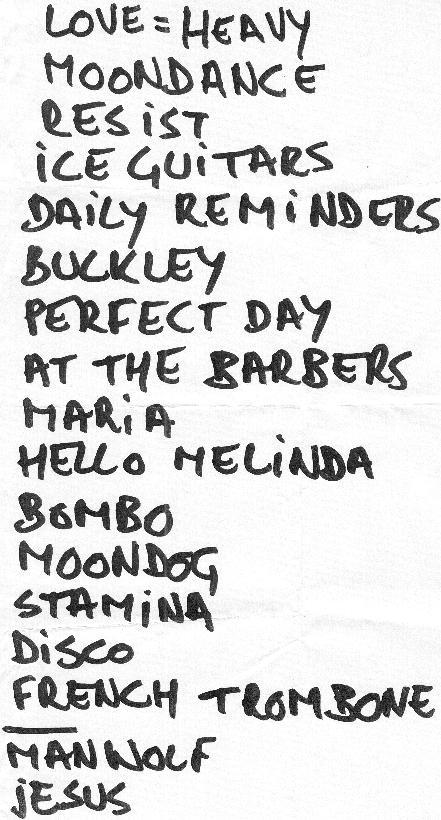 LOVE = HEAVY
MOONDANCE
RESiST
iCE GUiTARS
DAiLY REMiNDERS
BUCKLEY
PERFECT DAY
AT THE BARBERS
MARiA
HELLO MELiNDA
BOMBO
MOONDOG
STAMiNA
DiSCO
FRENCH TROMBONE
MANWOLF
jESUS